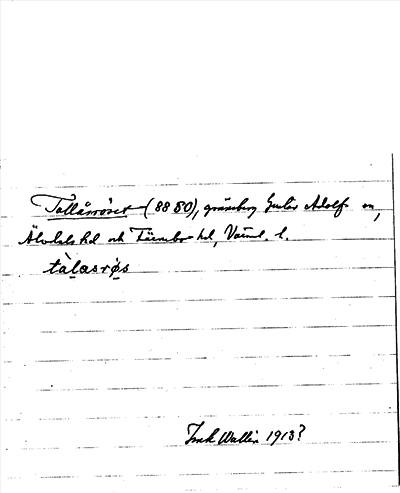 Tallåsröset (8880), gränsberg Gustav Adolfs sn,
Älvdals hd och Färnebo hd, Värml. l.
tàlasrǿs
Wallin 1913?